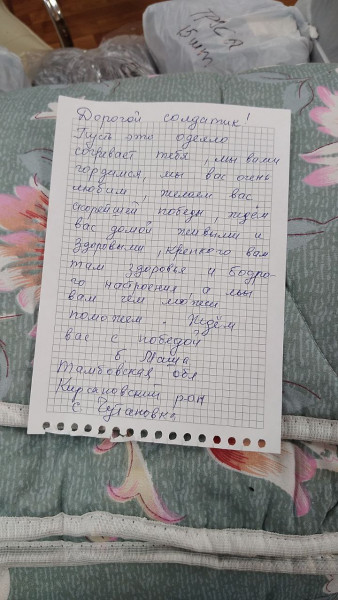 ТРУСЫ
5 шт
Дорогой солдатик!
Пусть это одеяло
согревает тебя, мы вами
гордимся, мы вас очень
любим, желаем вас
скорейшей победы, ждём
вас домой живыми и
здоровыми, крепкого вам
там здоровья и бодро-
го настроения, а мы
вам чем можем
поможем. Ждём
вас с победой
б. Маша
Тамбовская обл
Кирсановский р-он
с. Чутановка